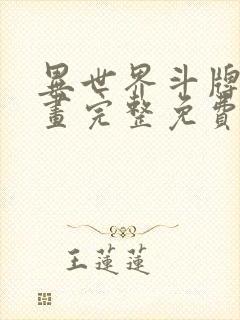 異世界斗牌
畫完整免費
王蓮蓮